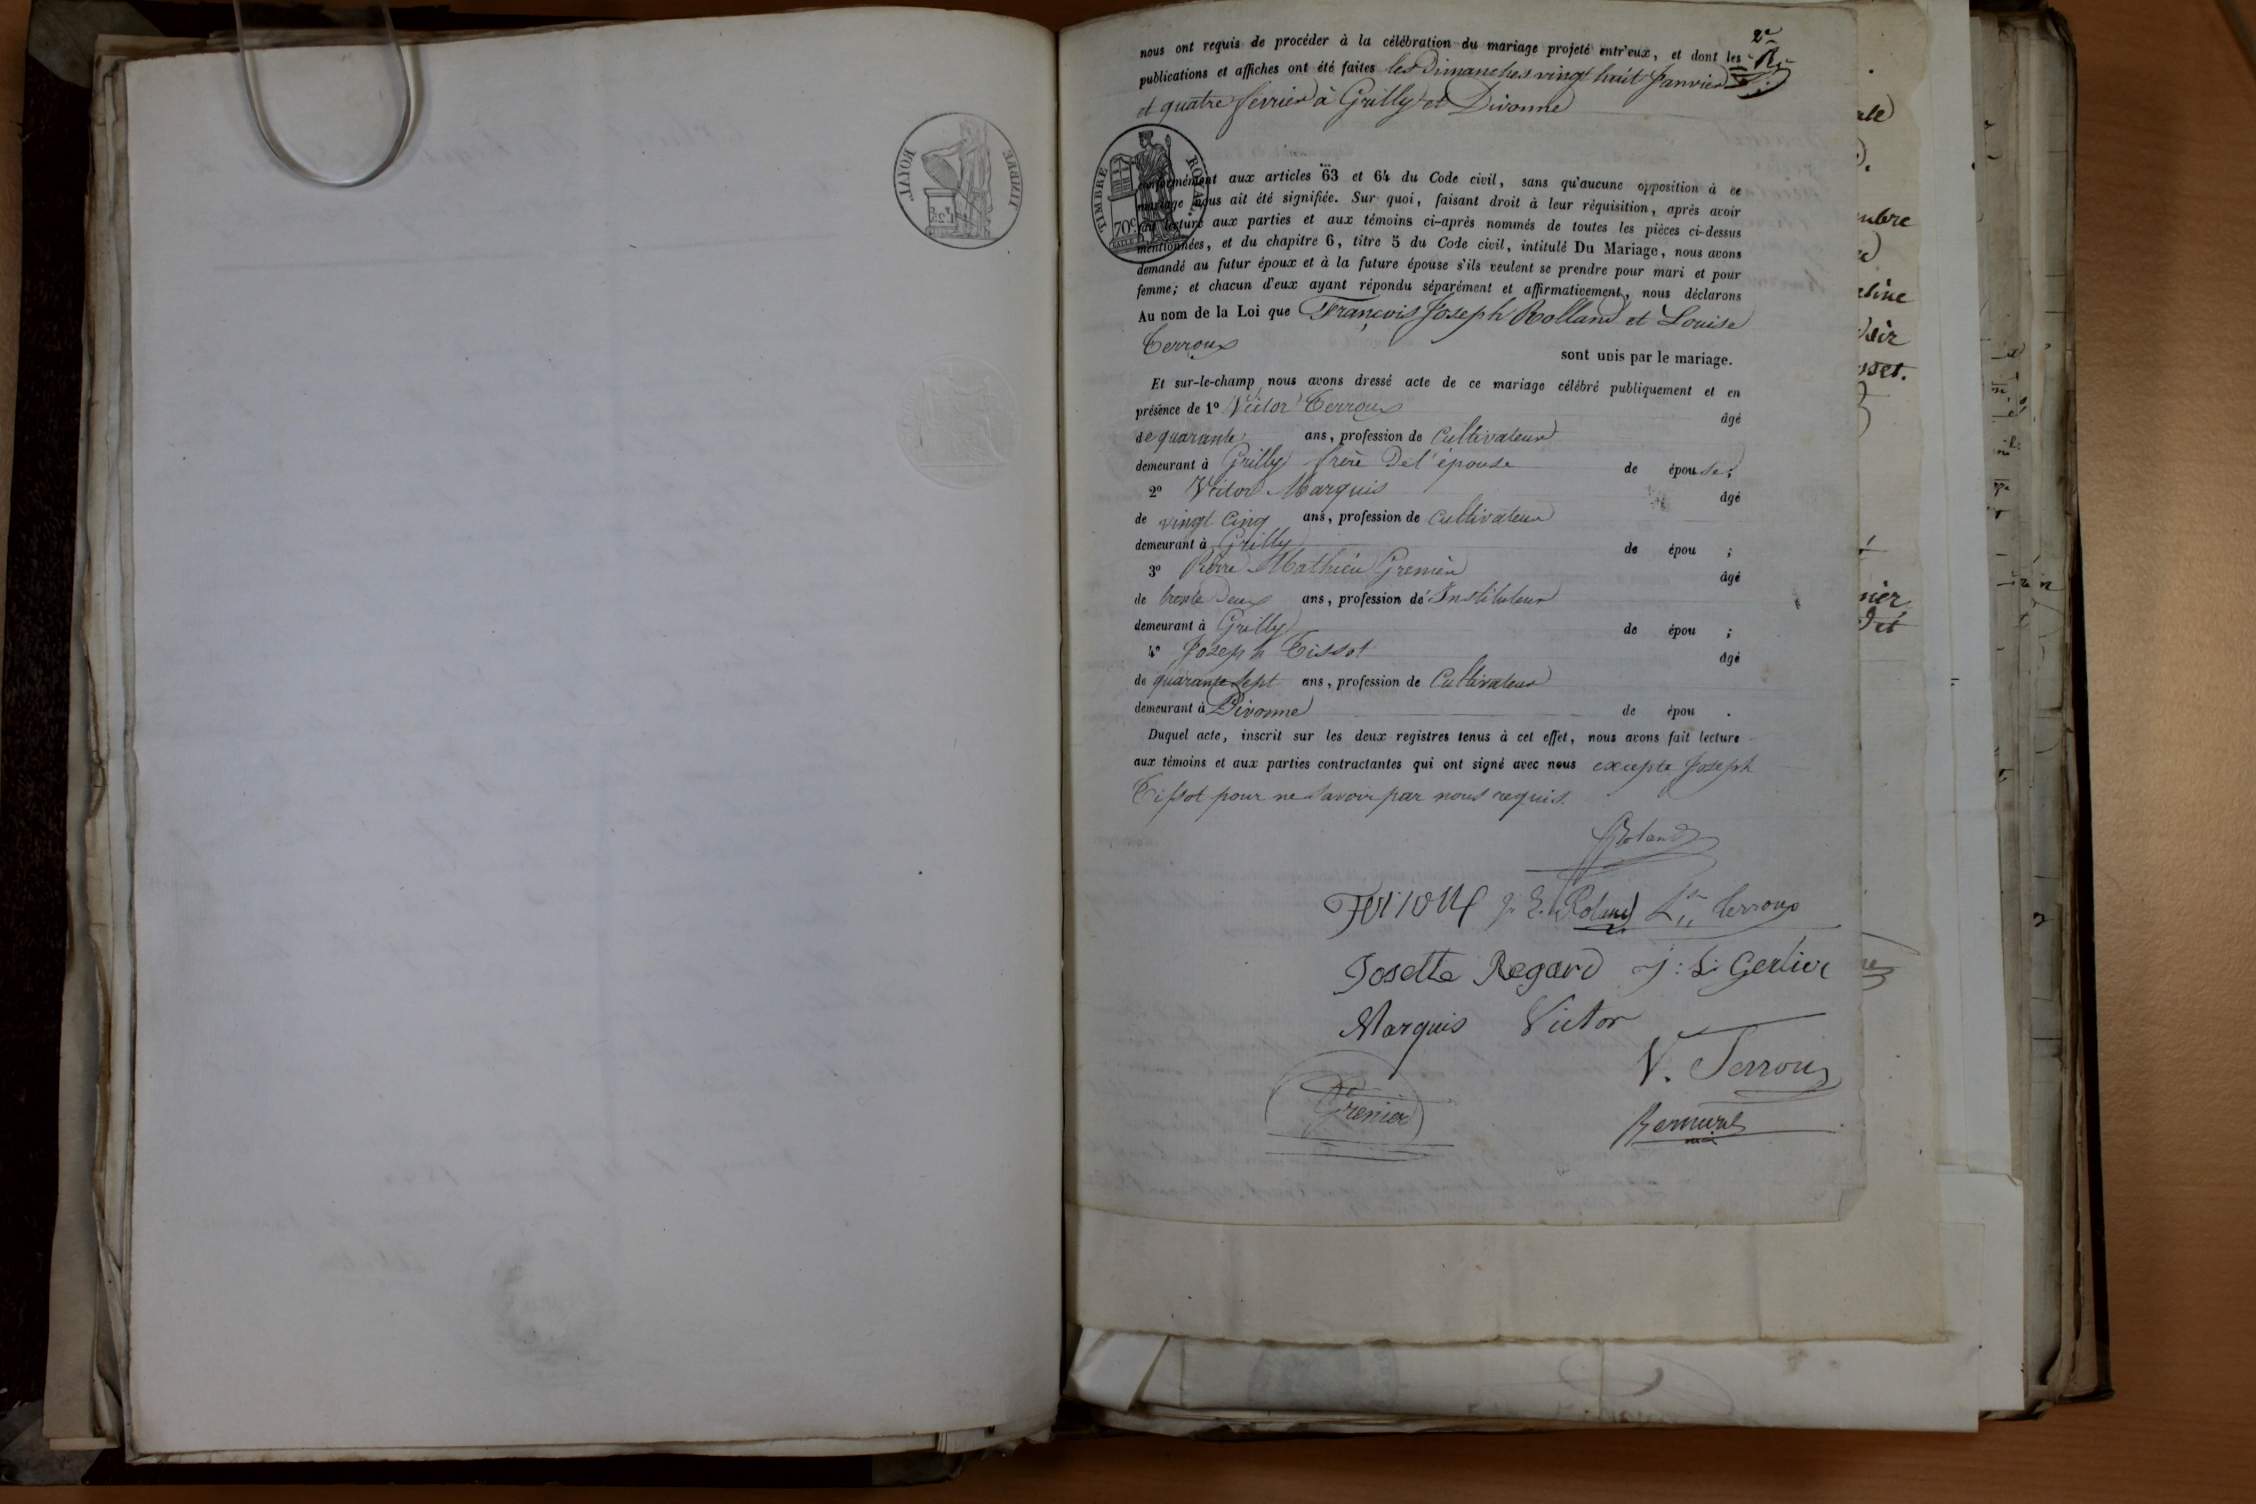 TIMBRE ROYAL
2e
nous ont requis de procéder à la célébration du mariage projeté entr'eux, et dont les
publications et affiches ont été faites les Dimanches vingt huit Janvier
et quatre fevrier à Grilly et Divonne
TIMBRE ROYAL
70c
conformément aux articles 63 et 64 du Code civil, sans qu'aucune opposition à ce
mariage nous ait été signifiée. Sur quoi, faisant droit à leur réquisition, après avoir
fait lecture aux parties et aux témoins ci-après nommés de toutes les pièces ci-dessus
mentionnées, et du chapitre 6, titre 5 du Code civil, intitulé Du Mariage, nous avons
demandé au futur époux et à la future épouse s'ils veulent se prendre pour mari et pour
femme; et chacun d'eux ayant répondu séparément et affirmativement, nous déclarons
Au nom de la Loi que François Joseph Rolland et Louise
Terroux
sont unis par le mariage.
Et sur-le-champ nous avons dressé acte de ce mariage célébré publiquement et en
présence de 1º Victor Terroux âgé
de quarante ans, profession de Cultivateur
demeurant à Grilly frère De l'épouse de épouse;
2º Victor Marquis âgé
de vingt cinq ans, profession de Cultivateur
demeurant à Grilly de épou ;
3º Pierre Mathieu Grenier âgé
de trente Deux ans, profession de Instituteur
demeurant à Grilly de épou ;
4º Joseph Tissot âgé
de quarante sept ans, profession de Cultivateur
demeurant à Divonne de épou .
Duquel acte, inscrit sur les deux registres tenus à cet effet, nous avons fait lecture
aux témoins et aux parties contractantes qui ont signé avec nous excepte Joseph
Tissot pour ne savoir par nous requis.
Roland
Roland Terroux
Josette Regard J: L: Gerlier
Marquis Victor
V. Terroux
Grenier